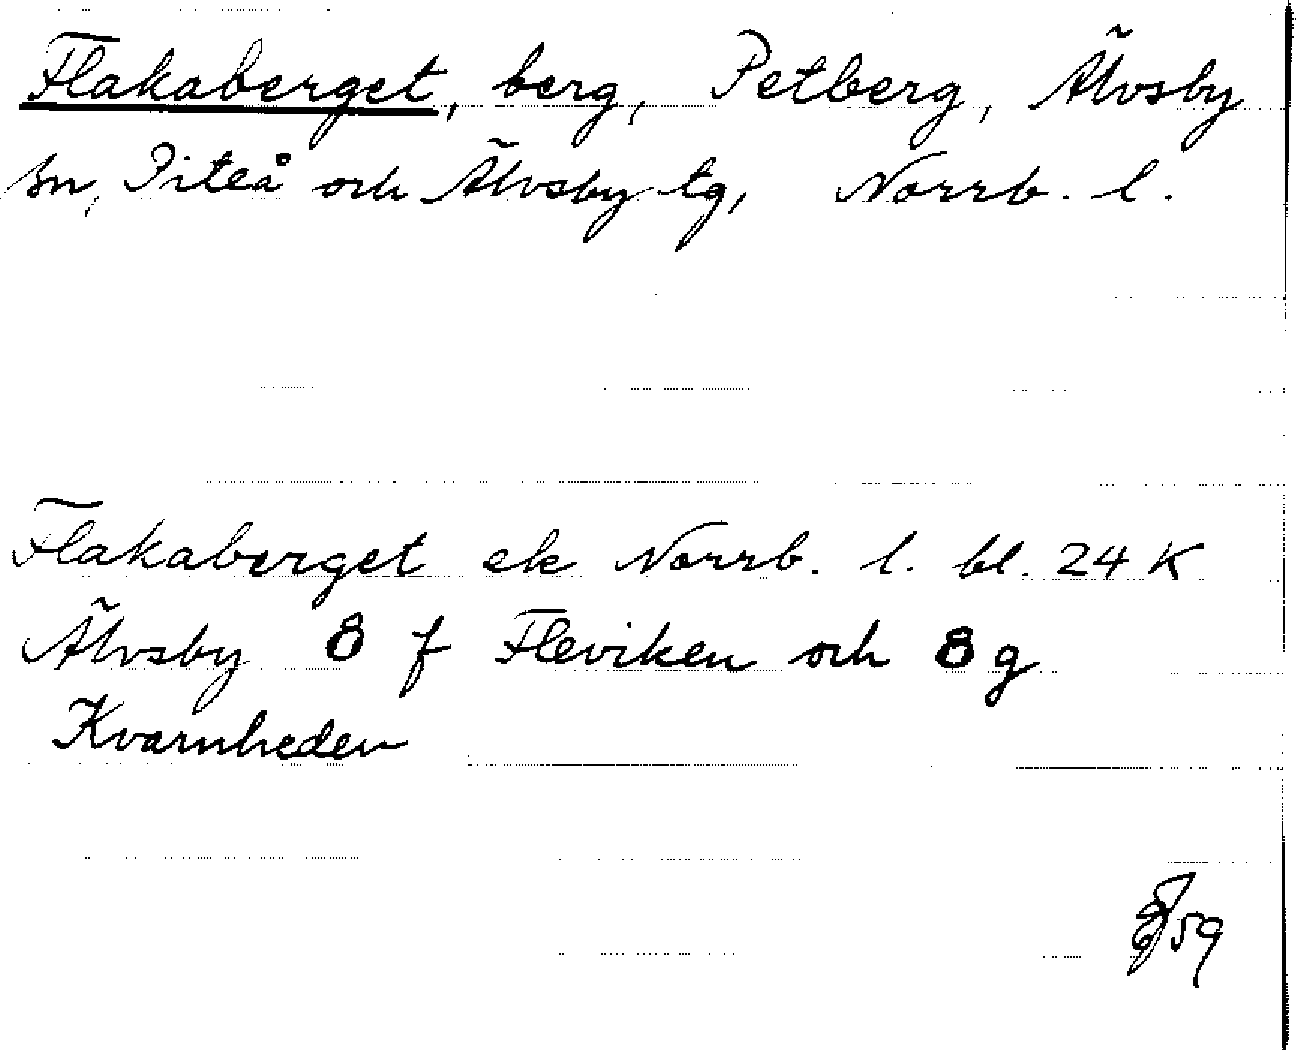 Flakaberget, berg, Petberg, Älvsby
sn, Piteå och Älvsby tg, Norrb. l.
Flakaberget ek Norrb. l. bl. 24 K
Älvsby 8 f Fleviken och 8 g
Kvarnheden
59